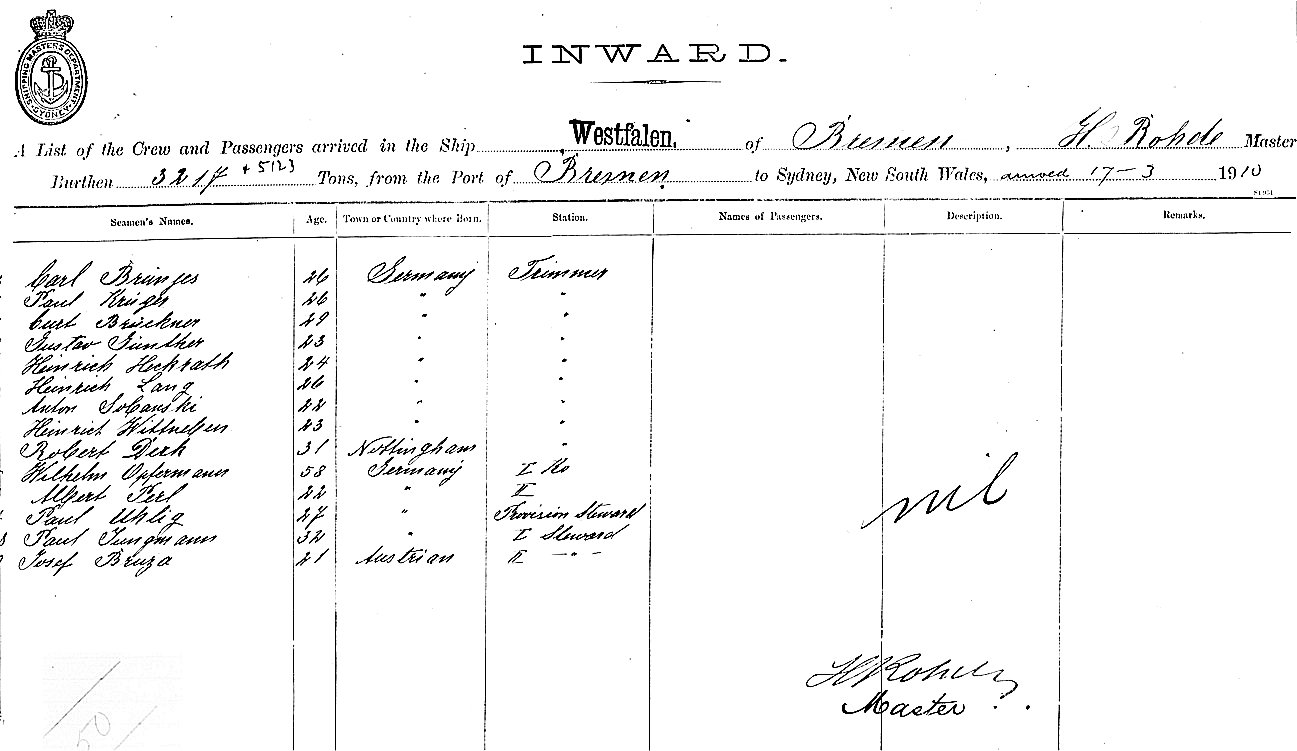 SHIPPING MASTERS DEPARTMENT SYDNEY
INWARD.
A List of the Crew and Passengers arrived in the Ship Westfalen, of Bremen, H. Rohde Master
Burthen 3217 + 5123 Tons, from the Port of Bremen to Sydney, New South Wales, arrived 17-3 1910
Seamen's Names. Age. Town or Country where Born. Station. Names of Passengers. Description. Remarks.
Carl Brünjes 26 Germany Trimmer
Paul Krüger 26 " "
Curt Brückner 29 " "
Gustav Günther 23 " "
Heinrich Heckrath 24 " "
Heinrich Lang 26 " "
Anton Sobanski 22 " "
Heinrich Wittneben 23 " "
Robert Derk 31 Nottingham "
Wilhelm Opfermann 58 Germany I Ko
Albert Perl 22 " II
Paul Uhlig 27 " Provision Steward
Paul Jungmann 32 " I Steward
Josef Bruza 21 Austrian II — " —
nil
H Rohde
Master
50